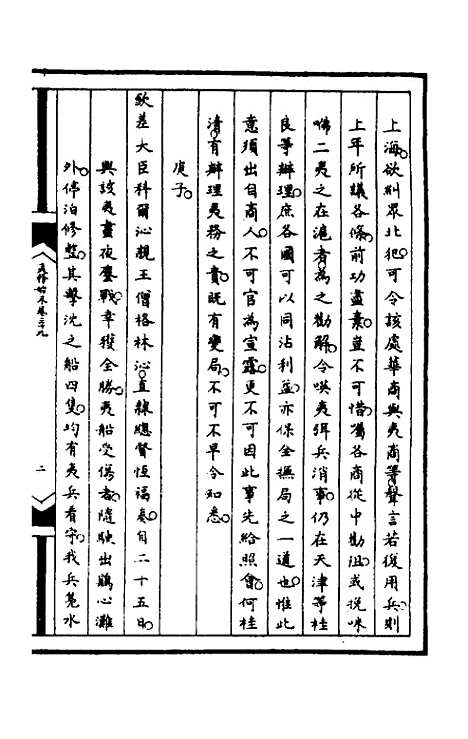 上海欲糾眾北犯可令該處華商與夷商等聲言若復用兵則
上年所議各條前功盡棄豈不可惜囑各商從中勸阻或挽咪
咈二夷之在滬者為之勸解令㗎夷弭兵消事仍在天津等桂
良等辦理庶各國可以同沾利益亦保全撫局之一道也惟此
意須出自商人不可官為宣露更不可因此事先給照會何桂
清有辦理夷務之責既有變局不可不早令知悉
庚子
欽差大臣科爾沁親王僧格林沁直隸總督恆福奏自二十五日
與該夷晝夜鏖戰幸獲全勝夷船受傷者隨駛出鷄心灘
外停泊修整其擊沈之船四隻均有夷兵看守我兵鳧水
夷務始末卷三十九
二